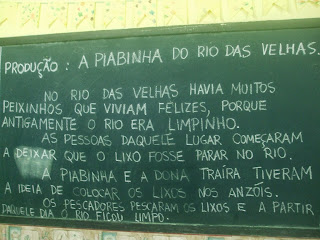 PRODUÇÃO : A PIABINHA DO RIO DAS VELHAS.
NO RIO DAS VELHAS HAVIA MUITOS
PEIXINHOS QUE VIVIAM FELIZES, PORQUE
ANTIGAMENTE O RIO ERA LIMPINHO.
AS PESSOAS DAQUELE LUGAR COMEÇARAM
A DEIXAR QUE O LIXO FOSSE PARAR NO RIO.
A PIABINHA E A DONA TRAÍRA TIVERAM
A IDEIA DE COLOCAR OS LIXOS NOS ANZÓIS.
OS PESCADORES PESCARAM OS LIXOS E A PARTIR
DAQUELE DIA O RIO FICOU LIMPO.